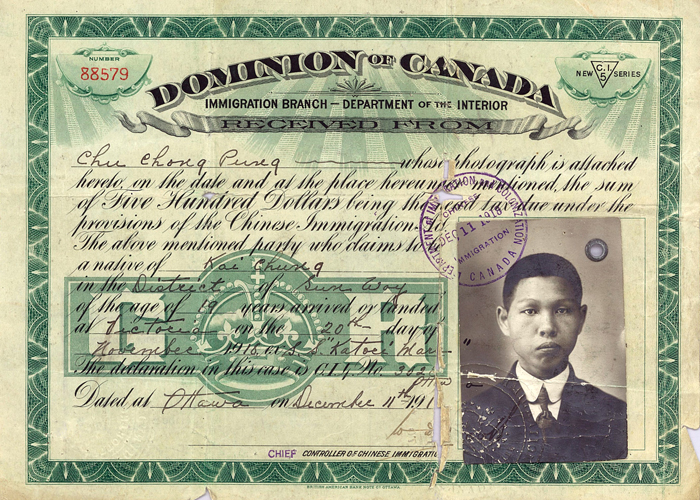 NUMBER
88579
DOMINION OF CANADA
NEW C.I. 5 SERIES
IMMIGRATION BRANCH — DEPARTMENT OF THE INTERIOR
RECEIVED FROM
Chu Chong Pung whose photograph is attached
hereto, on the date and at the place hereunder mentioned, the sum
of Five Hundred Dollars being the head tax due under the
provisions of the Chinese Immigration
The above mentioned party who claims to
a native of Kai Chung
in the District of Sun Woy
of the age of 19 years arrived or landed
at Victoria on the 20th day of
November 1918 ex S.S. "Katori Mar
The declaration in this case is C.I.4 No.
Dated at Ottawa on December 11th 191
CHIEF CONTROLLER OF CHINESE IMMIGRATIO
IMMIGRATION AND COLONIZATION
CHINESE
DEC 11 1918
IMMIGRATION
CANADA
C I
BRITISH AMERICAN BANK NOTE CO. OTTAWA